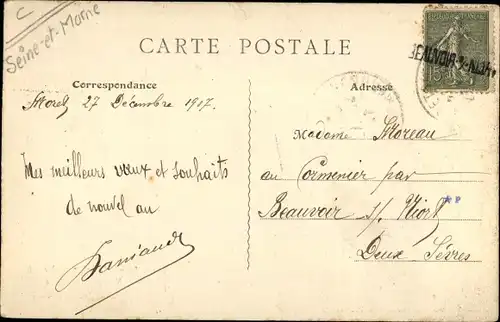 C
Seine-et-Marne
CARTE POSTALE
Correspondance
Adresse
RÉPUBLIQUE FRANÇAISE
15
BEAUVOIR-S-NIORT
Moret 27 Décembre 1917.
Mes meilleurs vœux et souhaits
de nouvel an
Madame Moreau
au Cormenier par
Beauvoir s/ Niort
Deux Sèvres